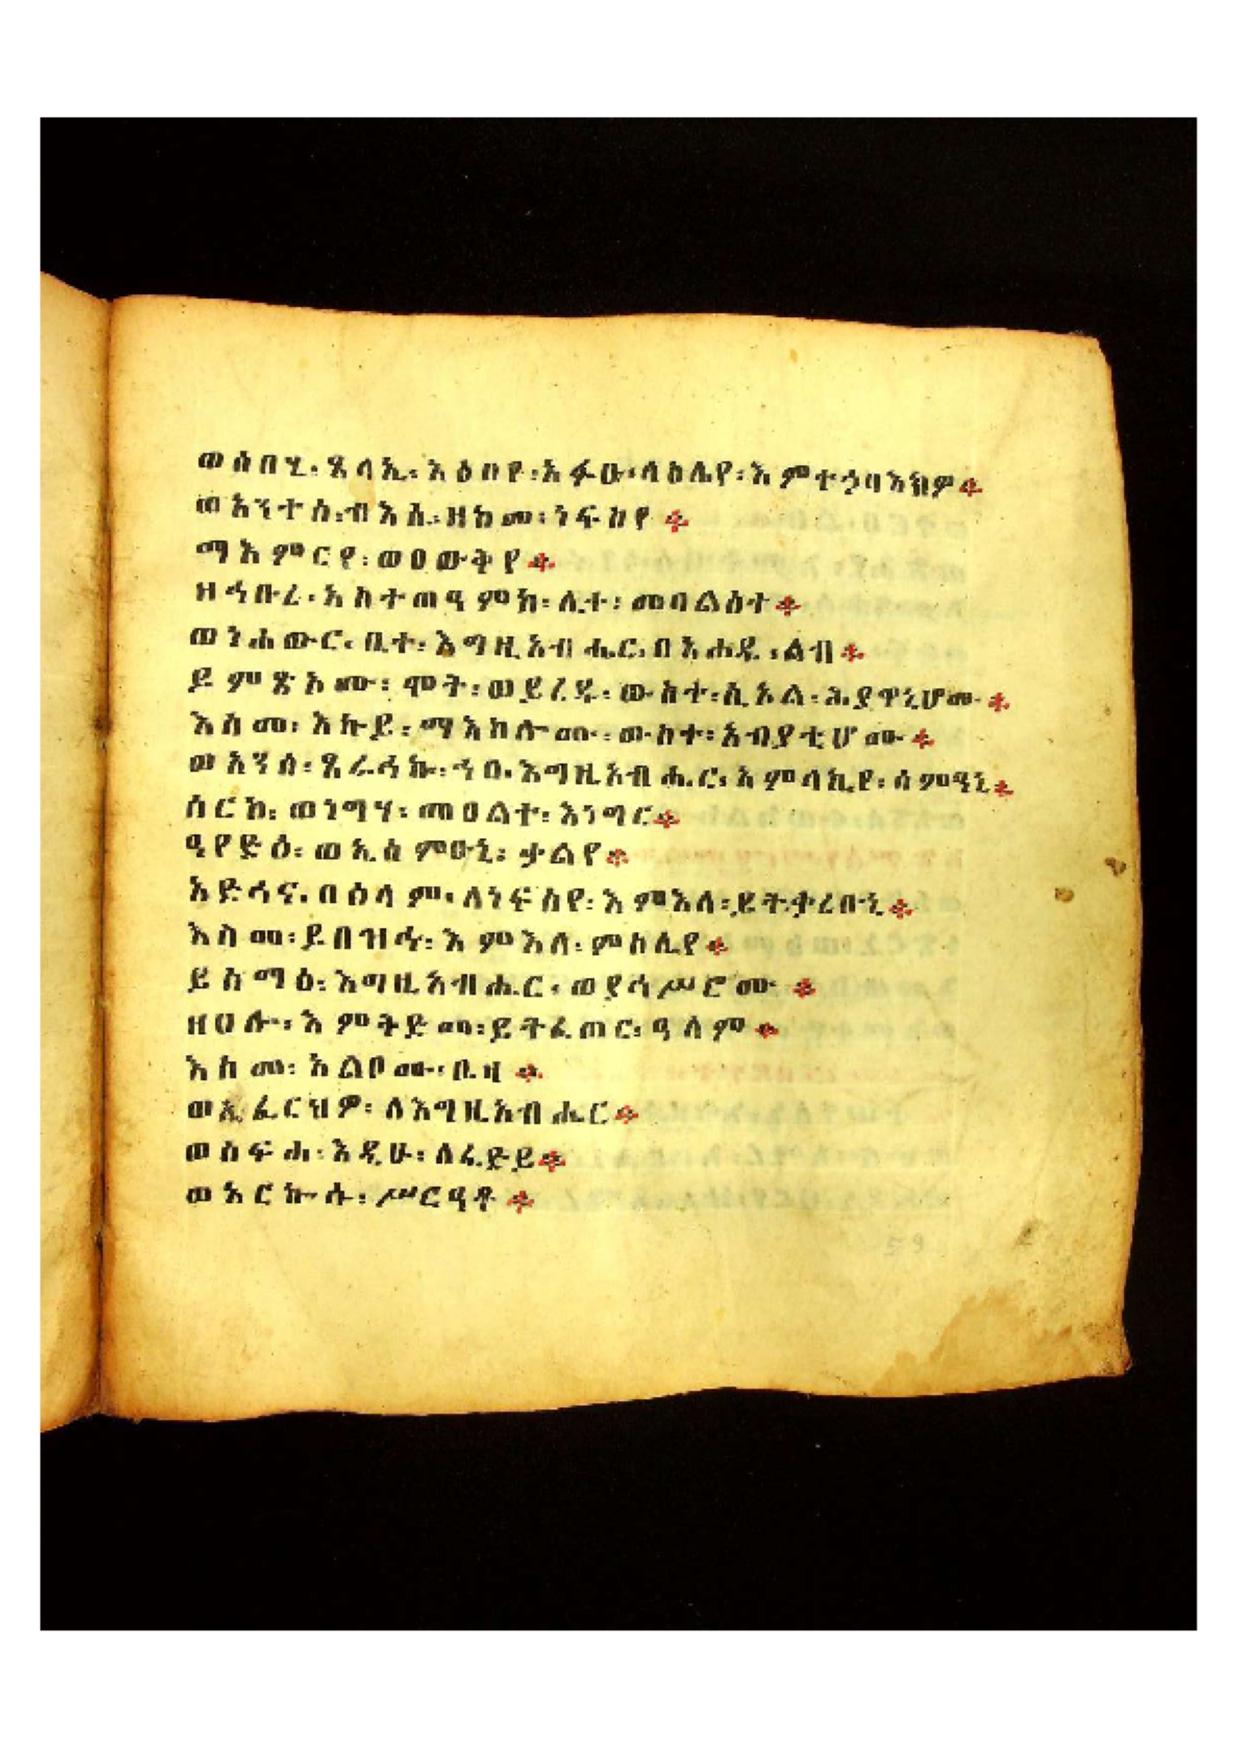 ወሶበሂ፡ ጸላኢ፡ አዕበየ፡ አፉሁ፡ ላዕሌየ፡ እምተኃባእክዎ።
ወአንተሰ፡ ብእሲ፡ ዘከመ፡ ነፍስየ።
ማእምርየ፡ ወዐውቅየ።
ዘኅቡረ፡ አስተጠዓምክ፡ ሊተ፡ መባልዕተ።
ወነሐውር፡ ቤተ፡ እግዚአብሔር፡ በአሐዱ፡ ልብ።
ይምጽኦሙ፡ ሞት፡ ወይረዱ፡ ውስተ፡ ሲኦል፡ ሕያዋኒሆሙ።
እስመ፡ እኩይ፡ ማእከሎሙ፡ ውስተ፡ አብያቲሆሙ።
ወአንሰ፡ ጸራኅኩ፡ ኀበ፡ እግዚአብሔር፡ አምላኪየ፡ ሰምዓኒ።
ሰርከ፡ ወነግሃ፡ መዐልተ፡ እነግር።
ዓየድዕ፡ ወኢስምዑኒ፡ ቃልየ።
አድኅና፡ በሰላም፡ ለነፍስየ፡ እምእለ፡ ይትቃረቡኒ።
እስመ፡ ይበዝኁ፡ እምእለ፡ ምስሌየ።
ይስማዕ፡ እግዚአብሔር፡ ወያኅሥሮሙ።
ዘሀሎ፡ እምትድመ፡ ይትፈጠር፡ ዓለም።
እስመ፡ አልቦሙ፡ ቤዛ።
ወኢፈርህዎ፡ ለእግዚአብሔር።
ወሰፍሐ፡ እዲሁ፡ ለፈድይ።
ወአርኰሱ፡ ሥርዓቶ።